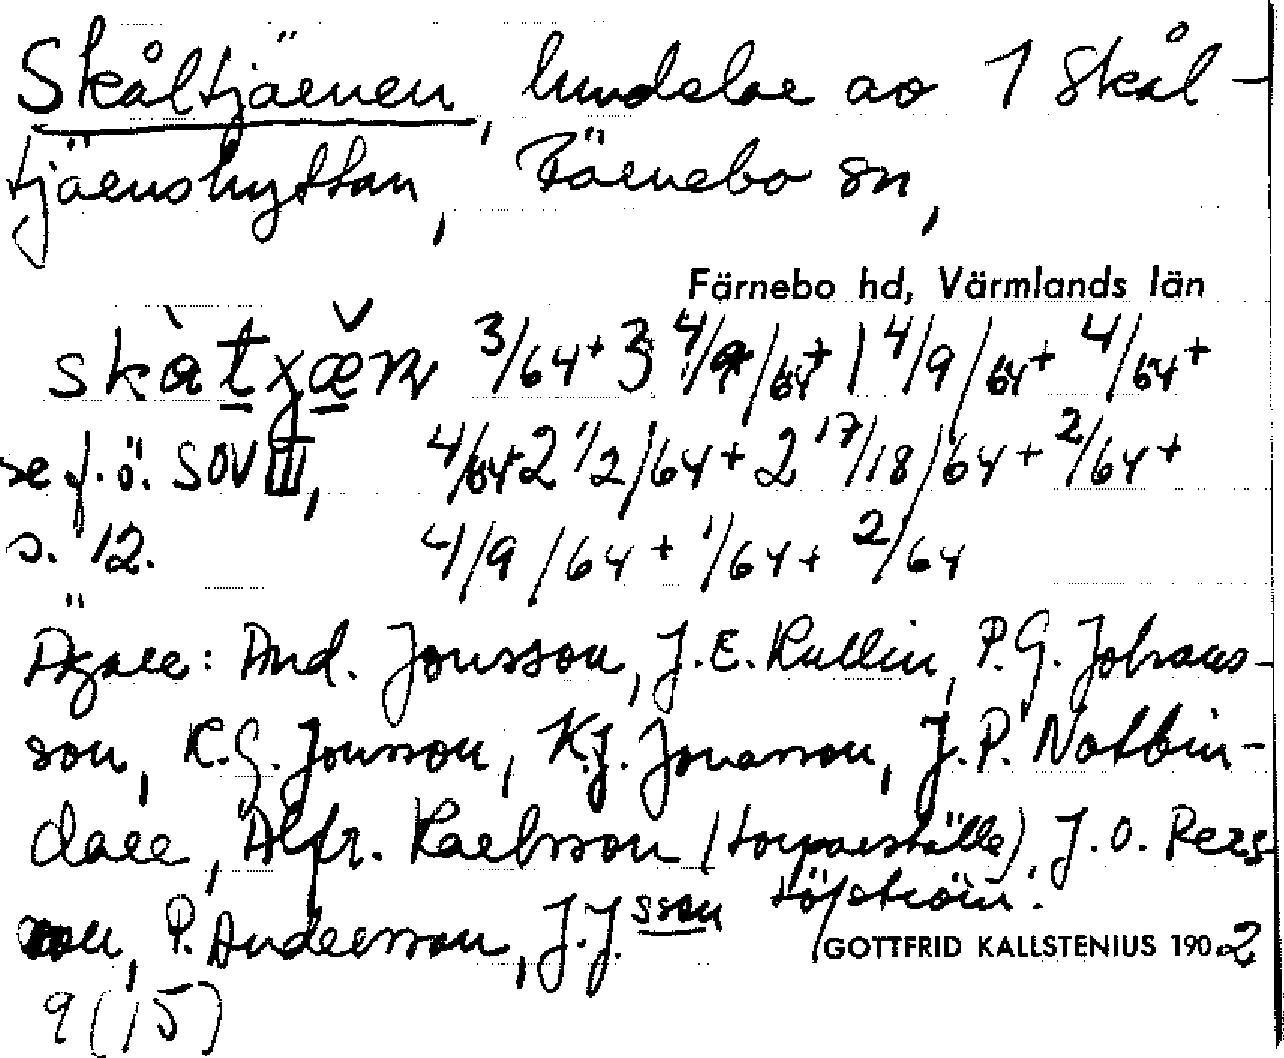 Skåltjärnen, hundelar av 1 Skål-
tjärnshyttan, Färnebo sn,
Färnebo hd, Värmlands län
3/64 + 3 4/9/64 + 1 4/9/64 + 4/64 +
se f. ö. SOV III, 4/64 + 2 1/2/64 + 2 17/18/64 + 2/64 +
s. 12. 4/9/64 + 1/64 + 2/64
Ägare: And. Jonsson, J.E. Rullin, P.G. Johans-
son, K.G. Jonsson, K.J. Jonasson, J.P. Notbin-
dare, Alfr. Karlsson (torparställe), J.O. Pers
son, P. Andersson, J.J.sson
GOTTFRID KALLSTENIUS 1902
9(15)